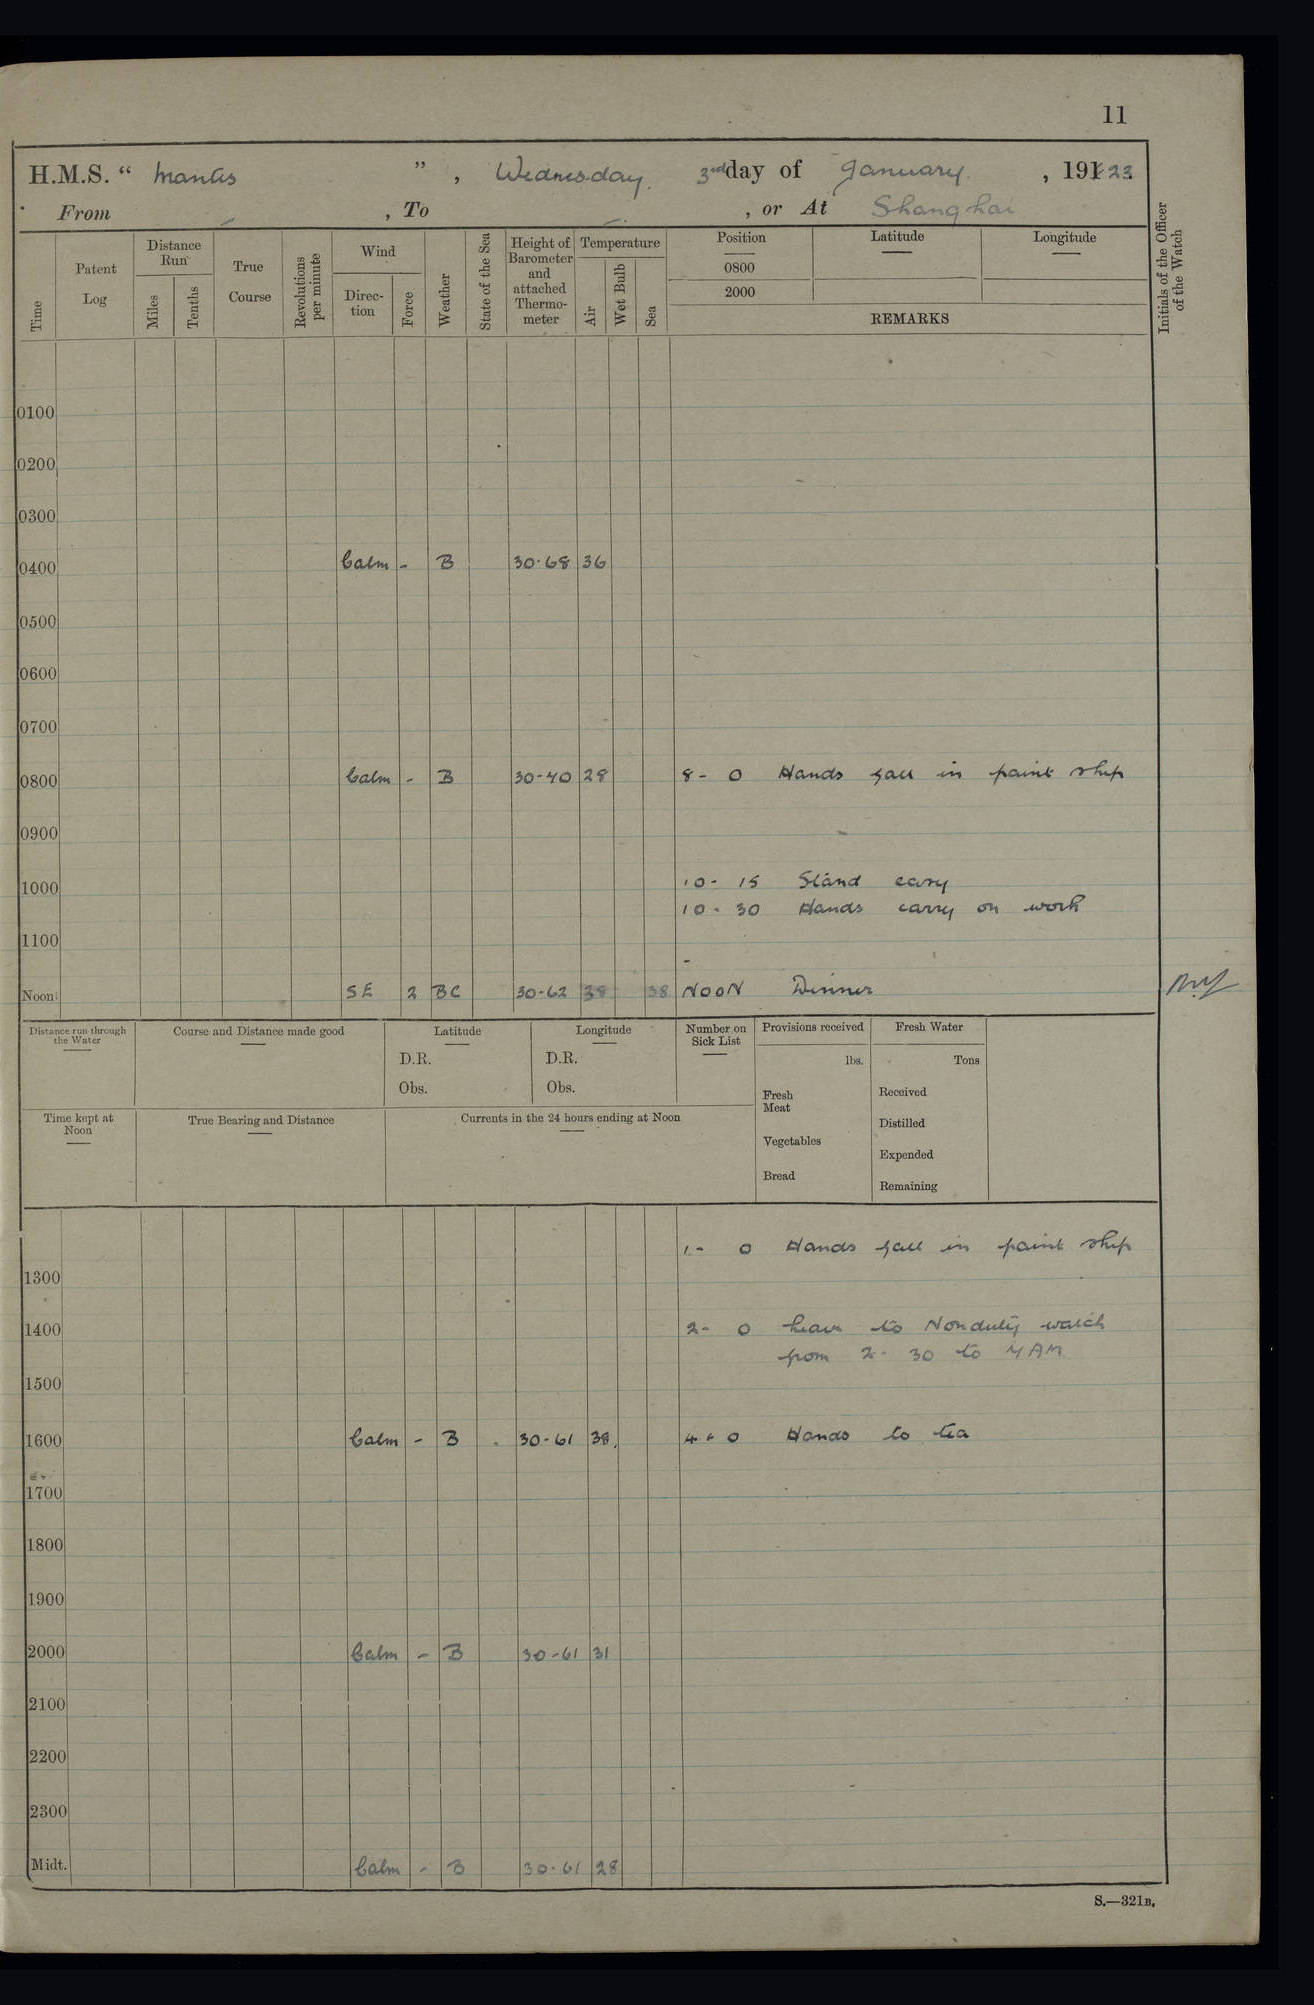 11
H.M.S. “ Mantis ” , Wednesday, 3rd day of January , 191 23
From – , To – , or At Shanghai
Time
Patent Log
Distance Run
Miles
Tenths
True Course
Revolutions per minute
Wind
Direction
Force
Weather
State of the Sea
Height of Barometer and attached Thermometer
Temperature
Air
Wet Bulb
Sea
Position
0800
2000
Latitude
Longitude
REMARKS
Initials of the Officer of the Watch
0100
0200
0300
0400 Calm - B 30.68 36
0500
0600
0700
0800 Calm - B 30-40 28 8- 0 Hands fall in paint ship
0900
1000 10- 15 Stand easy
10- 30 Hands carry on work
1100
Noon SE 2 BC 30-62 38 38 NOON Dinner
Distance run through the Water
Course and Distance made good
Latitude
D.R.
Obs.
Longitude
D.R.
Obs.
Number on Sick List
Provisions received
lbs.
Fresh Meat
Vegetables
Bread
Fresh Water
Tons
Received
Distilled
Expended
Remaining
Time kept at Noon
True Bearing and Distance
Currents in the 24 hours ending at Noon
1- 0 Hands fall in paint ship
1300
1400 2- 0 Leave to Nonduty watch
from 2- 30 to 7 AM
1500
1600 Calm - B 30-61 38 4- 0 Hands to tea
1700
1800
1900
2000 Calm - B 30-61 31
2100
2200
2300
Midt. Calm - B 30-61 28
S.—321B.